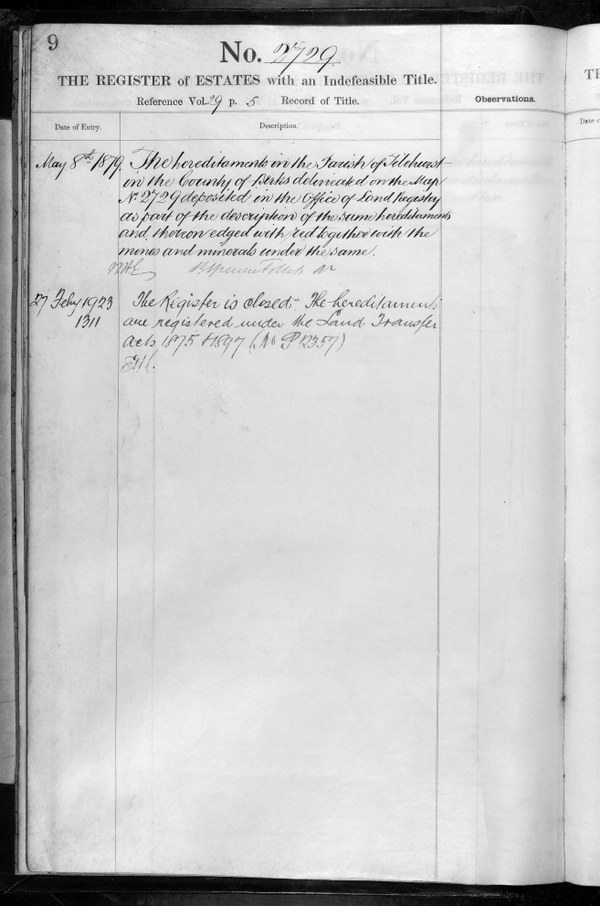 9
No. 2729
THE REGISTER of ESTATES with an Indefeasible Title.
Reference Vol. 29 p. 5 Record of Title.
Observations.
Date of Entry.
Description.
May 8th 1879. The hereditaments in the Parish of Tilehurst
in the County of Berks delineated on the Map
No. 2729 deposited in the Office of Land Registry
as part of the description of the same hereditaments
and thereon edged with red together with the
mines and minerals under the same.
27 Feby 1923 The Register is closed - The hereditaments
1311 are registered under the Land Transfer
Acts 1875 & 1897 (No P 12357)
TH
Date o